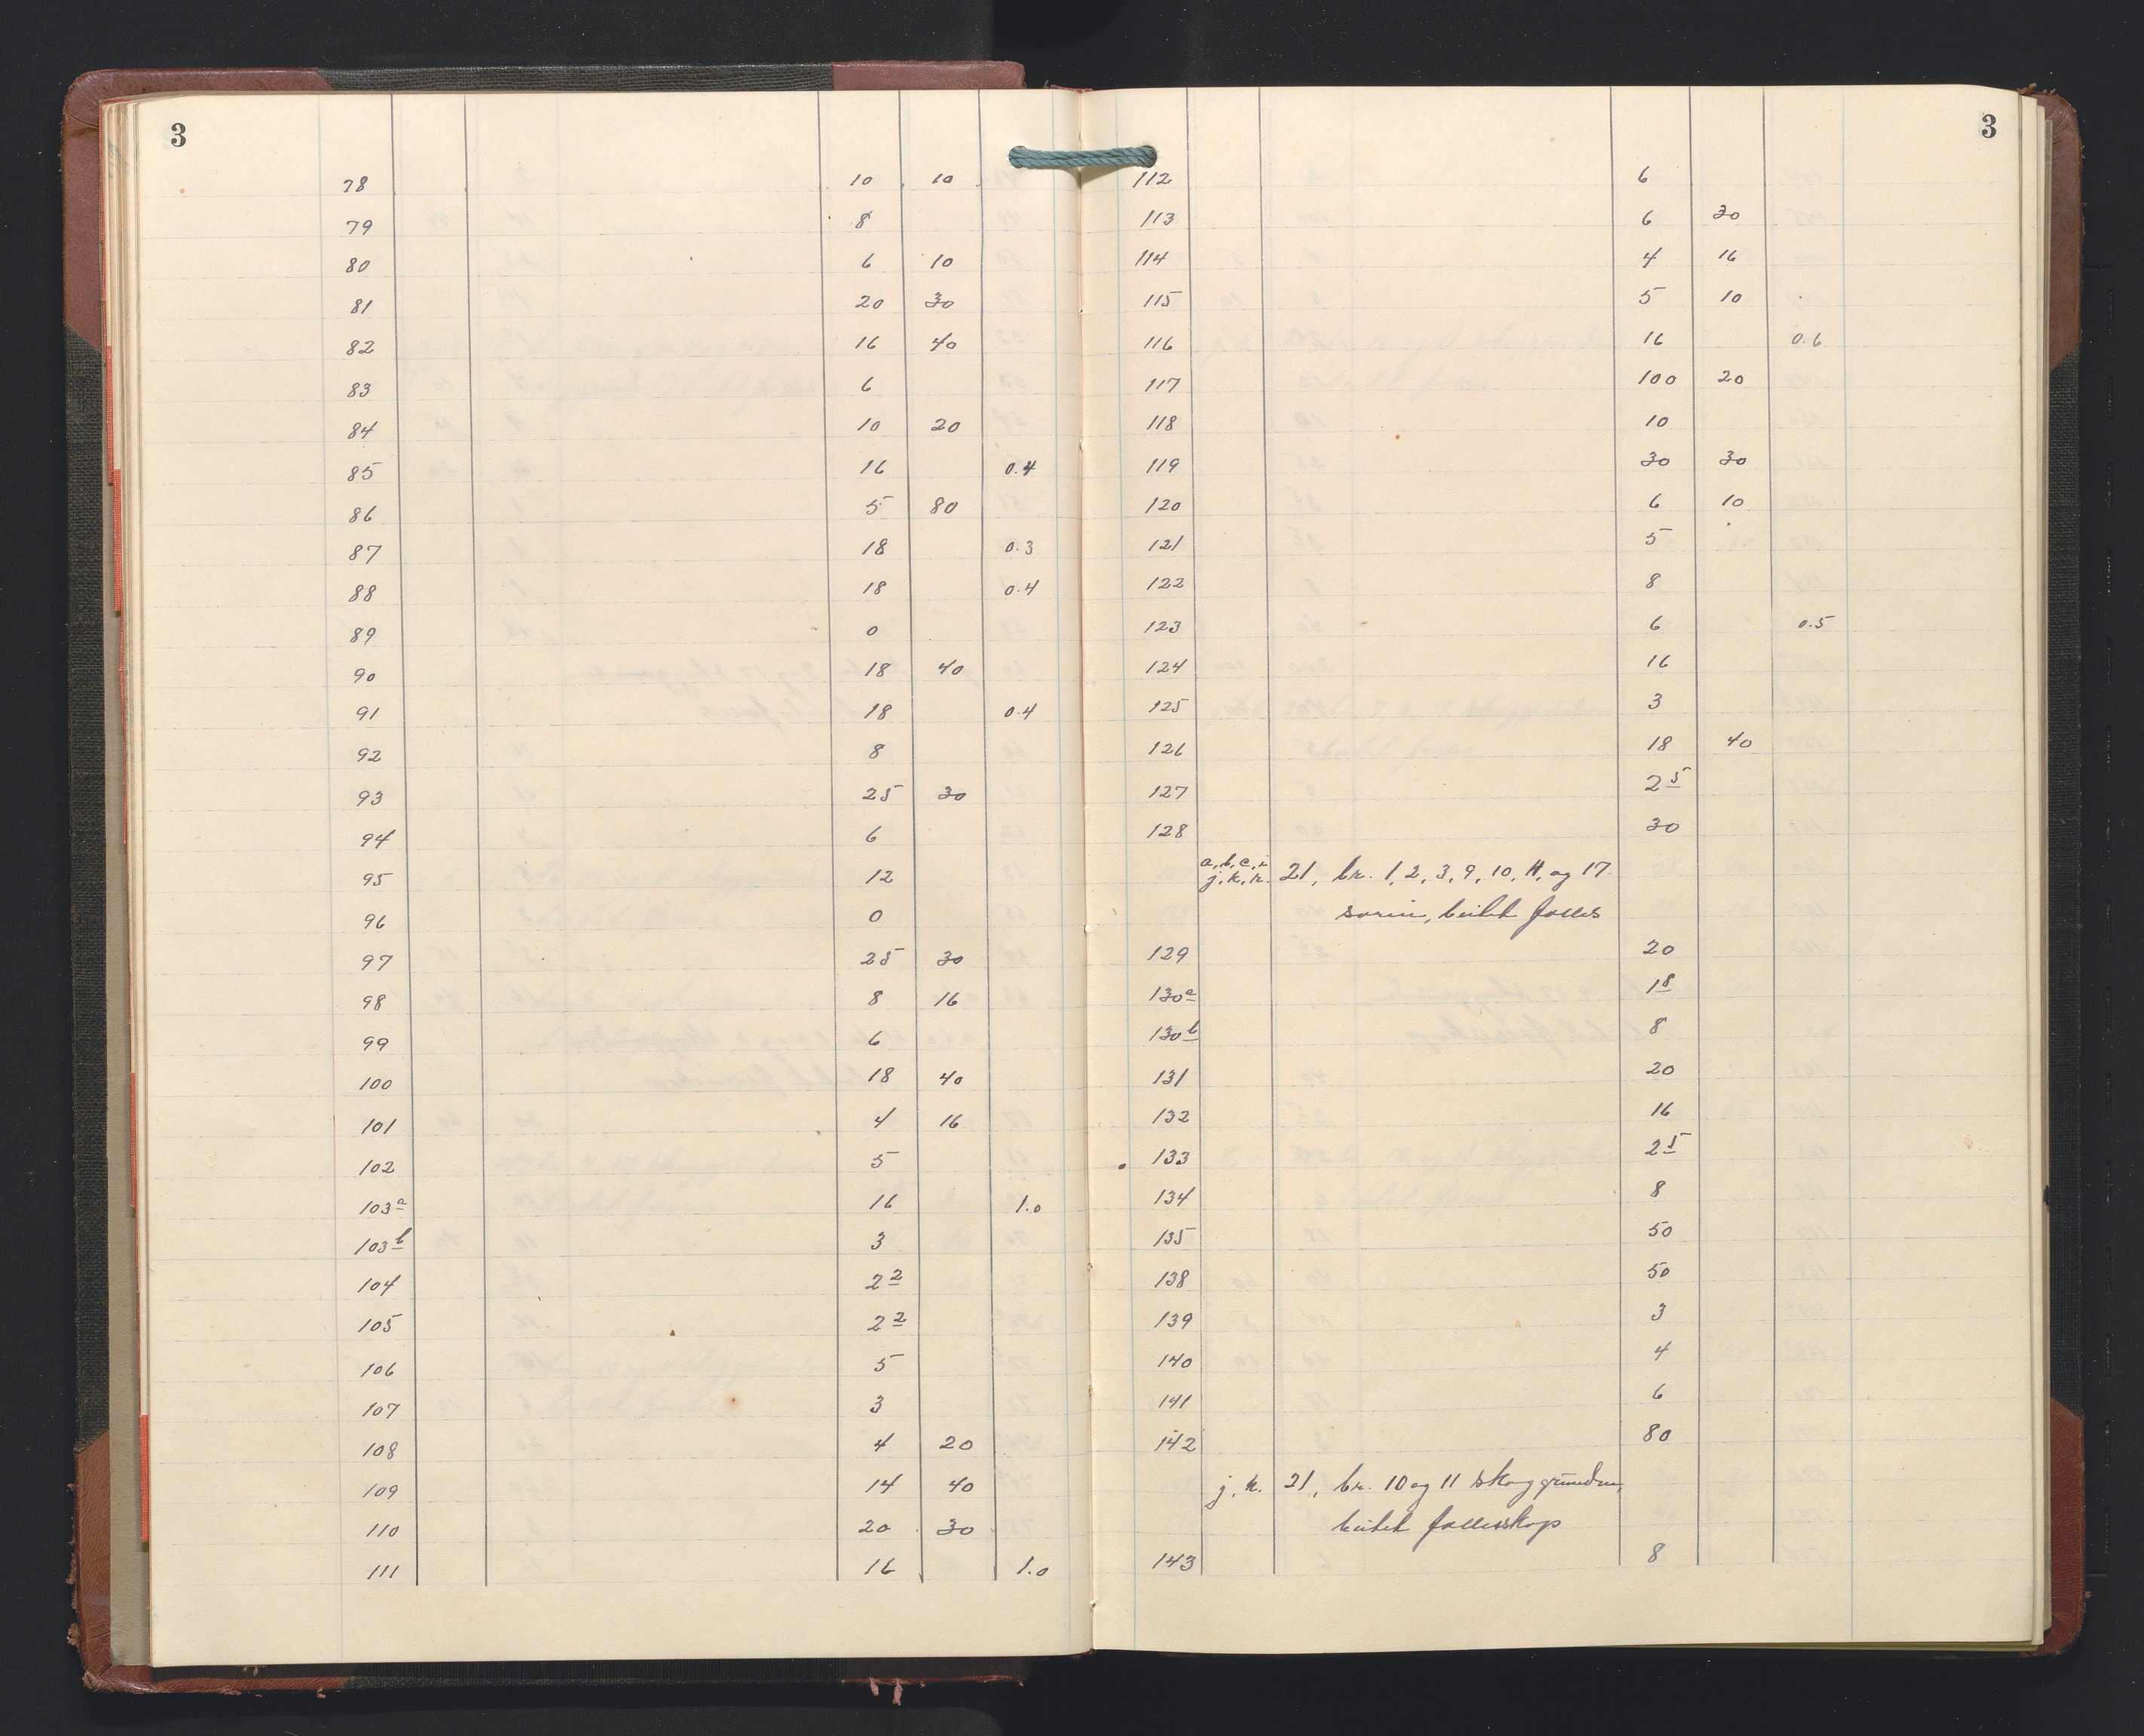 3
78 10 10
79 8
80 6 10
81 20 30
82 16 40
83 6
84 10 20
85 16 0.4
86 5 80
87 18 0.3
88 18 0.4
89 0
90 18 40
91 18 0.4
92 8
93 25 30
94 6
95 12
96 0
97 25 30
98 8 16
99 6
100 18 40
101 4 16
102 5
103a 16 1.0
103b 3
104 22
105 22
106 5
107 3
108 4 20
109 14 40
110 20 30
111 16 1.0
3
112 6
113 6 30
114 4 16
115 5 10
116 16 0.6
117 100 20
118 10
119 30 30
120 6 10
121 5
122 8
123 6 0.5
124 16
125 3
126 18 40
127 25
128 30
a, b, c, i
j, k, r. 21, br. 1, 2, 3, 9, 10, 11, og 17
beitet felles
129 20
130a 18
130b 8
131 20
132 16
133 25
134 8
135 50
138 50
139 3
140 4
141 6
142 80
j, k. 21, br. 10 og 11 skoggrunden,
beitet fellesskap
143 8